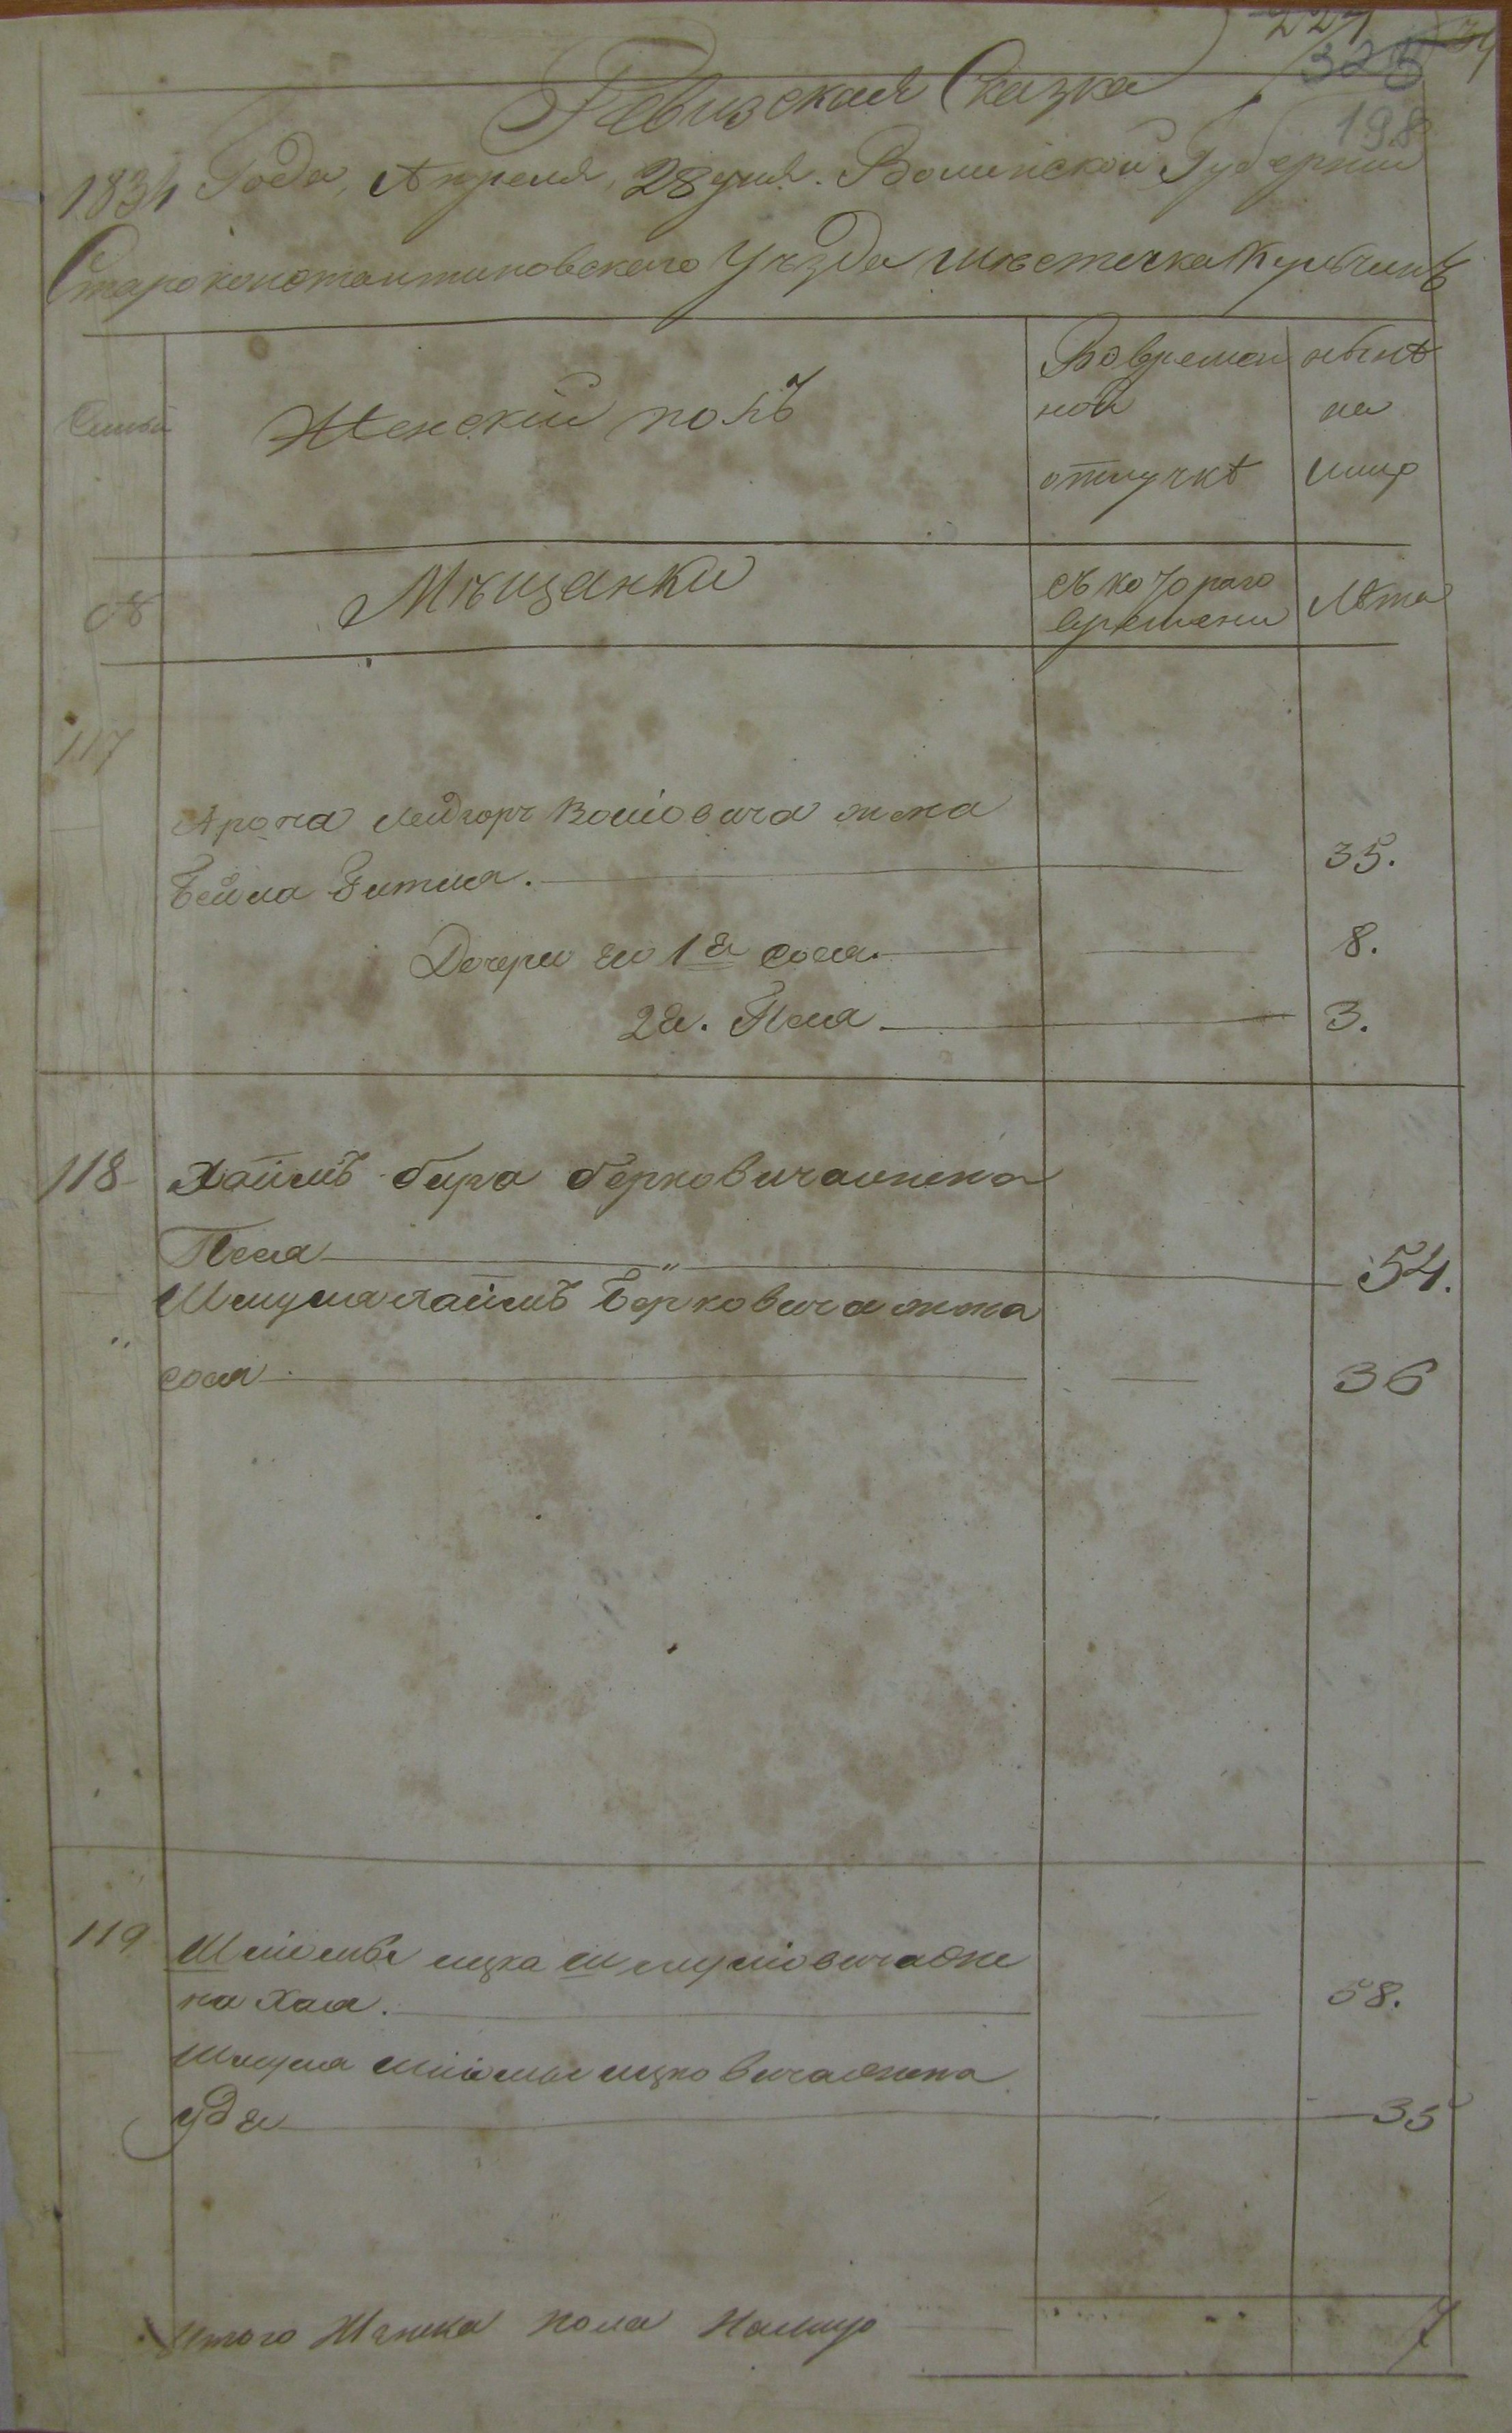 227
328
198
Ревизская Сказка
1834 Года, Апреля, 28 дня. Волинской Губернии
Староконстантиновского Уѣзда Мѣстечка Кульчинъ
Семьи
Женскiй полъ
Во времен
ной
отлучкѣ
нынѣ
на
лицо
Мѣщанки
съ котораго
времени
Лѣта
117
Арона Лейзоръ Вольовича жена
Бейла Гитля. 35.
Дочери его 1я Сося. 8.
2я. Песя 3.
118 Хаимъ бера берковича жена
Песя " 54.
Шмуля Хаимъ Берковича жена
сося 36
119 Шлиомы ицка шмулиовича же
на Хая. 58.
Шмуля Шлиомы ицковича жена
удя 35
Итого Женска пола Налицо 7